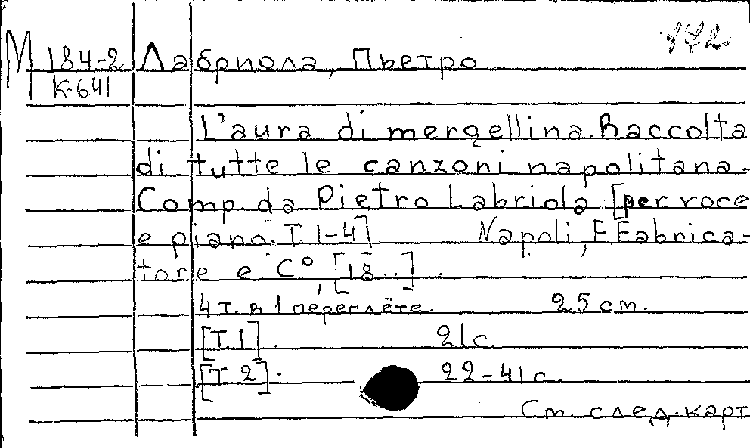 М 184-2 Лабриола, Пьетро 142
К-641
L'aura di mergellina. Raccolta
di tutte le canzoni napolitana.
Comp. da Pietro Labriola [per voce
e piano. T 1-4] Napoli, F Fabrica-
tore e C°, [18...]
4 т. в 1 переплёте. 25 см.
[T. 1]. 21 с.
[T 2]. 22-41 с.
См. след. карт